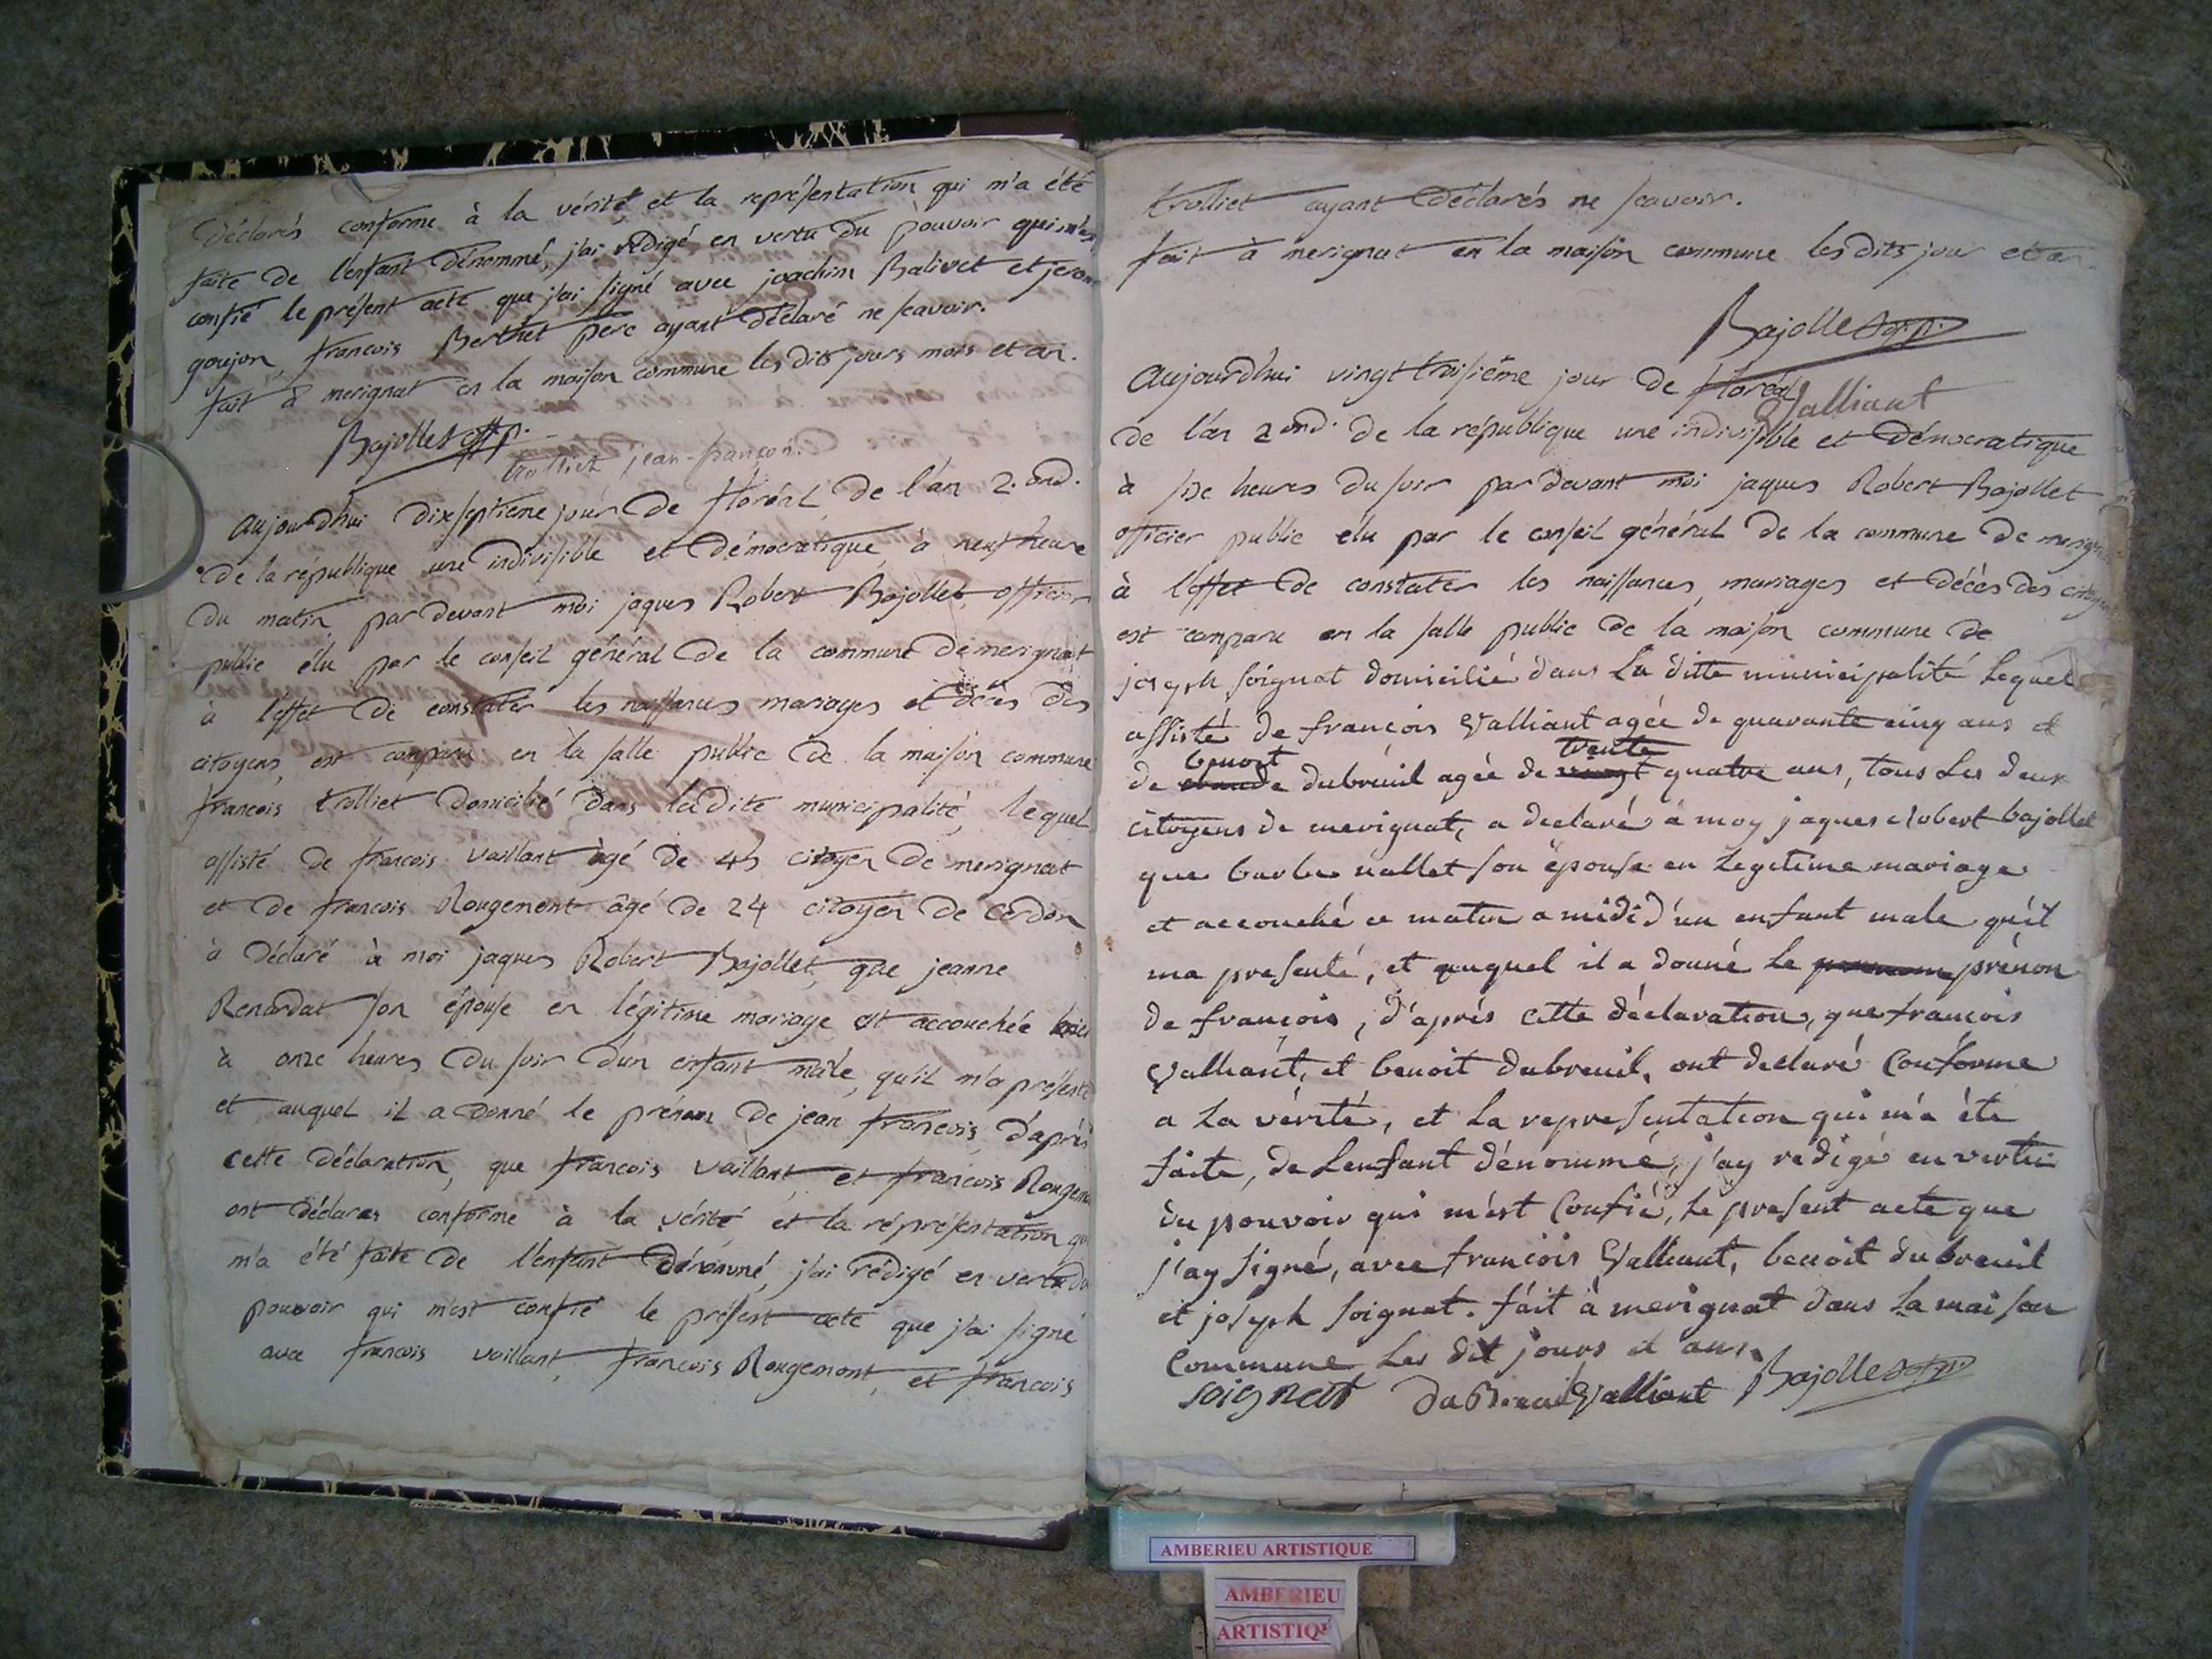 Déclarés conforme à la vérité et la représentation qui m'a été
faite de l'enfant dénommé, j'ai rédigé en vertu du pouvoir qui m'est
confié le présent acte que j'ai signé avec joachim Balivet et jerom
goujon, francois Berthet père ayant déclaré ne scavoir.
fait à merignat en la maison commune les dits jours mois et an.
Bajollet off. p.
trolliet jean-françois.
aujourdhui dixseptieme jour de floréal de l'an 2.ond.
de la république une indivisible et démocratique, à neuf heure
du matin, pardevant moi jaques Robert Bajollet officier
public élu par le conseil général de la commune de merignat
à l'effet de constater les naissances mariages et décès des
citoyens, est comparu en la salle public de la maison commune
francois trolliet domicilié dans ladite municipalité, lequel
assisté de francois vaillant âgé de 45 citoyen de merignat
et de francois Rougemont âgé de 24 citoyen de cerdon
à déclaré à moi jaques Robert Bajollet, que jeanne
Renardat son épouse en légitime mariage est accouchée hier
à onze heures du soir d'un enfant mâle, qu'il m'a présenté
et auquel il a donné le prénom de jean francois, d'après
cette déclaration, que francois vaillant et francois Rougemo
ont déclarés conforme à la vérité, et la réprésentation qui
m'a été faite de l'enfant dénommé, j'ai rédigé en vertu du
pouvoir qui m'est confié le présent acte que j'ai signé
avec francois vaillant, francois Rougemont, et francois
trolliet ayant déclarés ne scavoir.
fait à merignat en la maison commune les dits jour et an
Bajollet off. p.
aujourdhui vingt troisième jour de floréal
Valliant
de l'an 2ond. de la république une indivisible et démocratique
à six heures du soir par devant moi jaques Robert Bajollet
officier public élu par le conseil général de la commune de merign
à l'effet de constater les naissances, mariages et décès des citoyens
est comparu en la salle public de la maison commune de
joseph soignat domicilié dans La ditte municipalité Lequel
assisté de françois Valliant agée de quarante cinq ans et
benoit trente
de claude dubreuil agée de vingt quatre ans, tous Les deux
citoyens de merignat, a declaré à moy jaques robert bajollet
que barbe nallet son épouse en Legitime mariage
et accouché ce matin a midi d'un enfant male qu'il
ma presenté, et auquel il a donné Le prénon
de françois, d'aprés cette déclaration, que francois
Valliant, et benoit dubreuil, ont declaré Conforme
a La vérité, et La representation qui m'a été
faite, de Lenfant dénommé, j'ay redigé en vertu
du pouvoir qui m'est Confié, Le present acte que
j'ay signé, avec francois Valliant, benoit dubreuil
et joseph soignat. fait à merignat dans La maison
Commune Les dit jours et ans.
soignat duBreuil Valliant Bajollet off. p.
AMBERIEU ARTISTIQUE
AMBERIEU
ARTISTIQ